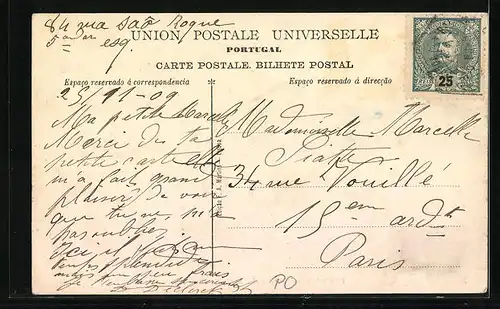 84 rua São Roque
5º andar esq.
UNION POSTALE UNIVERSELLE
PORTUGAL
CARTE POSTALE. BILHETE POSTAL
Espaço reservado á correspondencia
Espaço reservado á direcção
25
25/11-09
Ma petite Marcelle
Merci de ta
petite carte elle
m'a fait grand
plaisir de voir
que tu ne m'a
pas oublié.
Ici il
temps splendide
mais un peu frais
Je t'embrasse
Mademoiselle Marcelle
34 rue Vouillé
15em ardt
Paris
PO